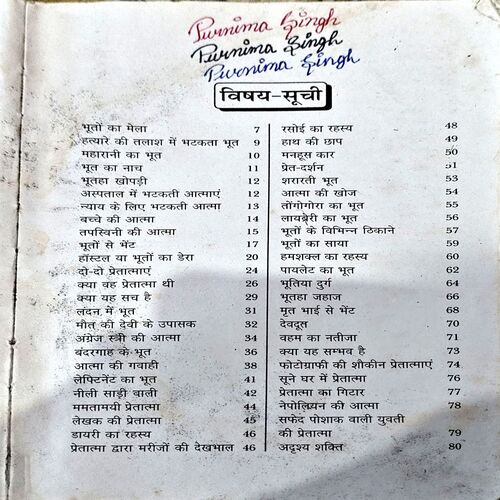 Purnima Singh
Purnima Singh
Purnima Singh
विषय-सूची
भूतों का मेला 7
हत्यारे की तलाश में भटकता भूत 9
महारानी का भूत 10
भूत का नाच 11
भूतहा खोपड़ी 12
अस्पताल में भटकती आत्माएं 12
न्याय के लिए भटकती आत्मा 13
बच्चे की आत्मा 14
तपस्विनी की आत्मा 15
भूतों से भेंट 17
हॉस्टल या भूतों का डेरा 20
दो-दो प्रेतात्माएं 24
क्या वह प्रेतात्मा थी 26
क्या यह सच है 29
लंदन में भूत 31
मौत की देवी के उपासक 32
अंग्रेज स्त्री की आत्मा 34
बंदरगाह के भूत 36
आत्मा की गवाही 38
लेफ्टिनेंट का भूत 41
नीली साड़ी वाली 42
ममतामयी प्रेतात्मा 44
लेखक की प्रेतात्मा 45
डायरी का रहस्य 46
प्रेतात्मा द्वारा मरीजों की देखभाल 46
रसोई का रहस्य 48
हाथ की छाप 49
मनहूस कार 50
प्रेत-दर्शन 51
शरारती भूत 53
आत्मा की खोज 54
तोंगोगोरा का भूत 55
लायब्रेरी का भूत 56
भूतों के विभिन्न ठिकाने 57
भूतों का साया 59
हमशक्ल का रहस्य 60
पायलेट का भूत 62
भूतिया दुर्ग 64
भूतहा जहाज 66
मृत भाई से भेंट 68
देवदूत 70
वहम का नतीजा 71
क्या यह सम्भव है 73
फोटोग्राफी की शौकीन प्रेतात्माएं 74
सूने घर में प्रेतात्मा 76
प्रेतात्मा का गिटार 77
नेपोलियन की आत्मा 78
सफेद पोशाक वाली युवती
की प्रेतात्मा 79
अदृश्य शक्ति 80